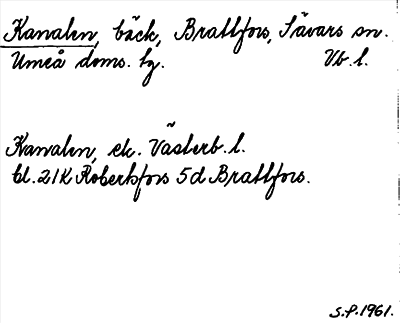 Kanalen, bäck, Brattfors, Sävars sn.
Umeå doms. hg. Vb. l.
Kanalen, ek. Västerb. l.
bl. 21K Robertsfors 5d Brattfors.
S.P. 1961.